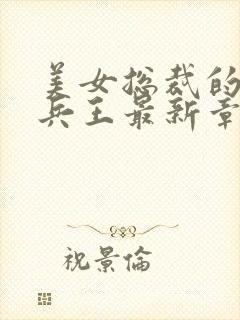 美女总裁的
兵王最新章
祝景倫